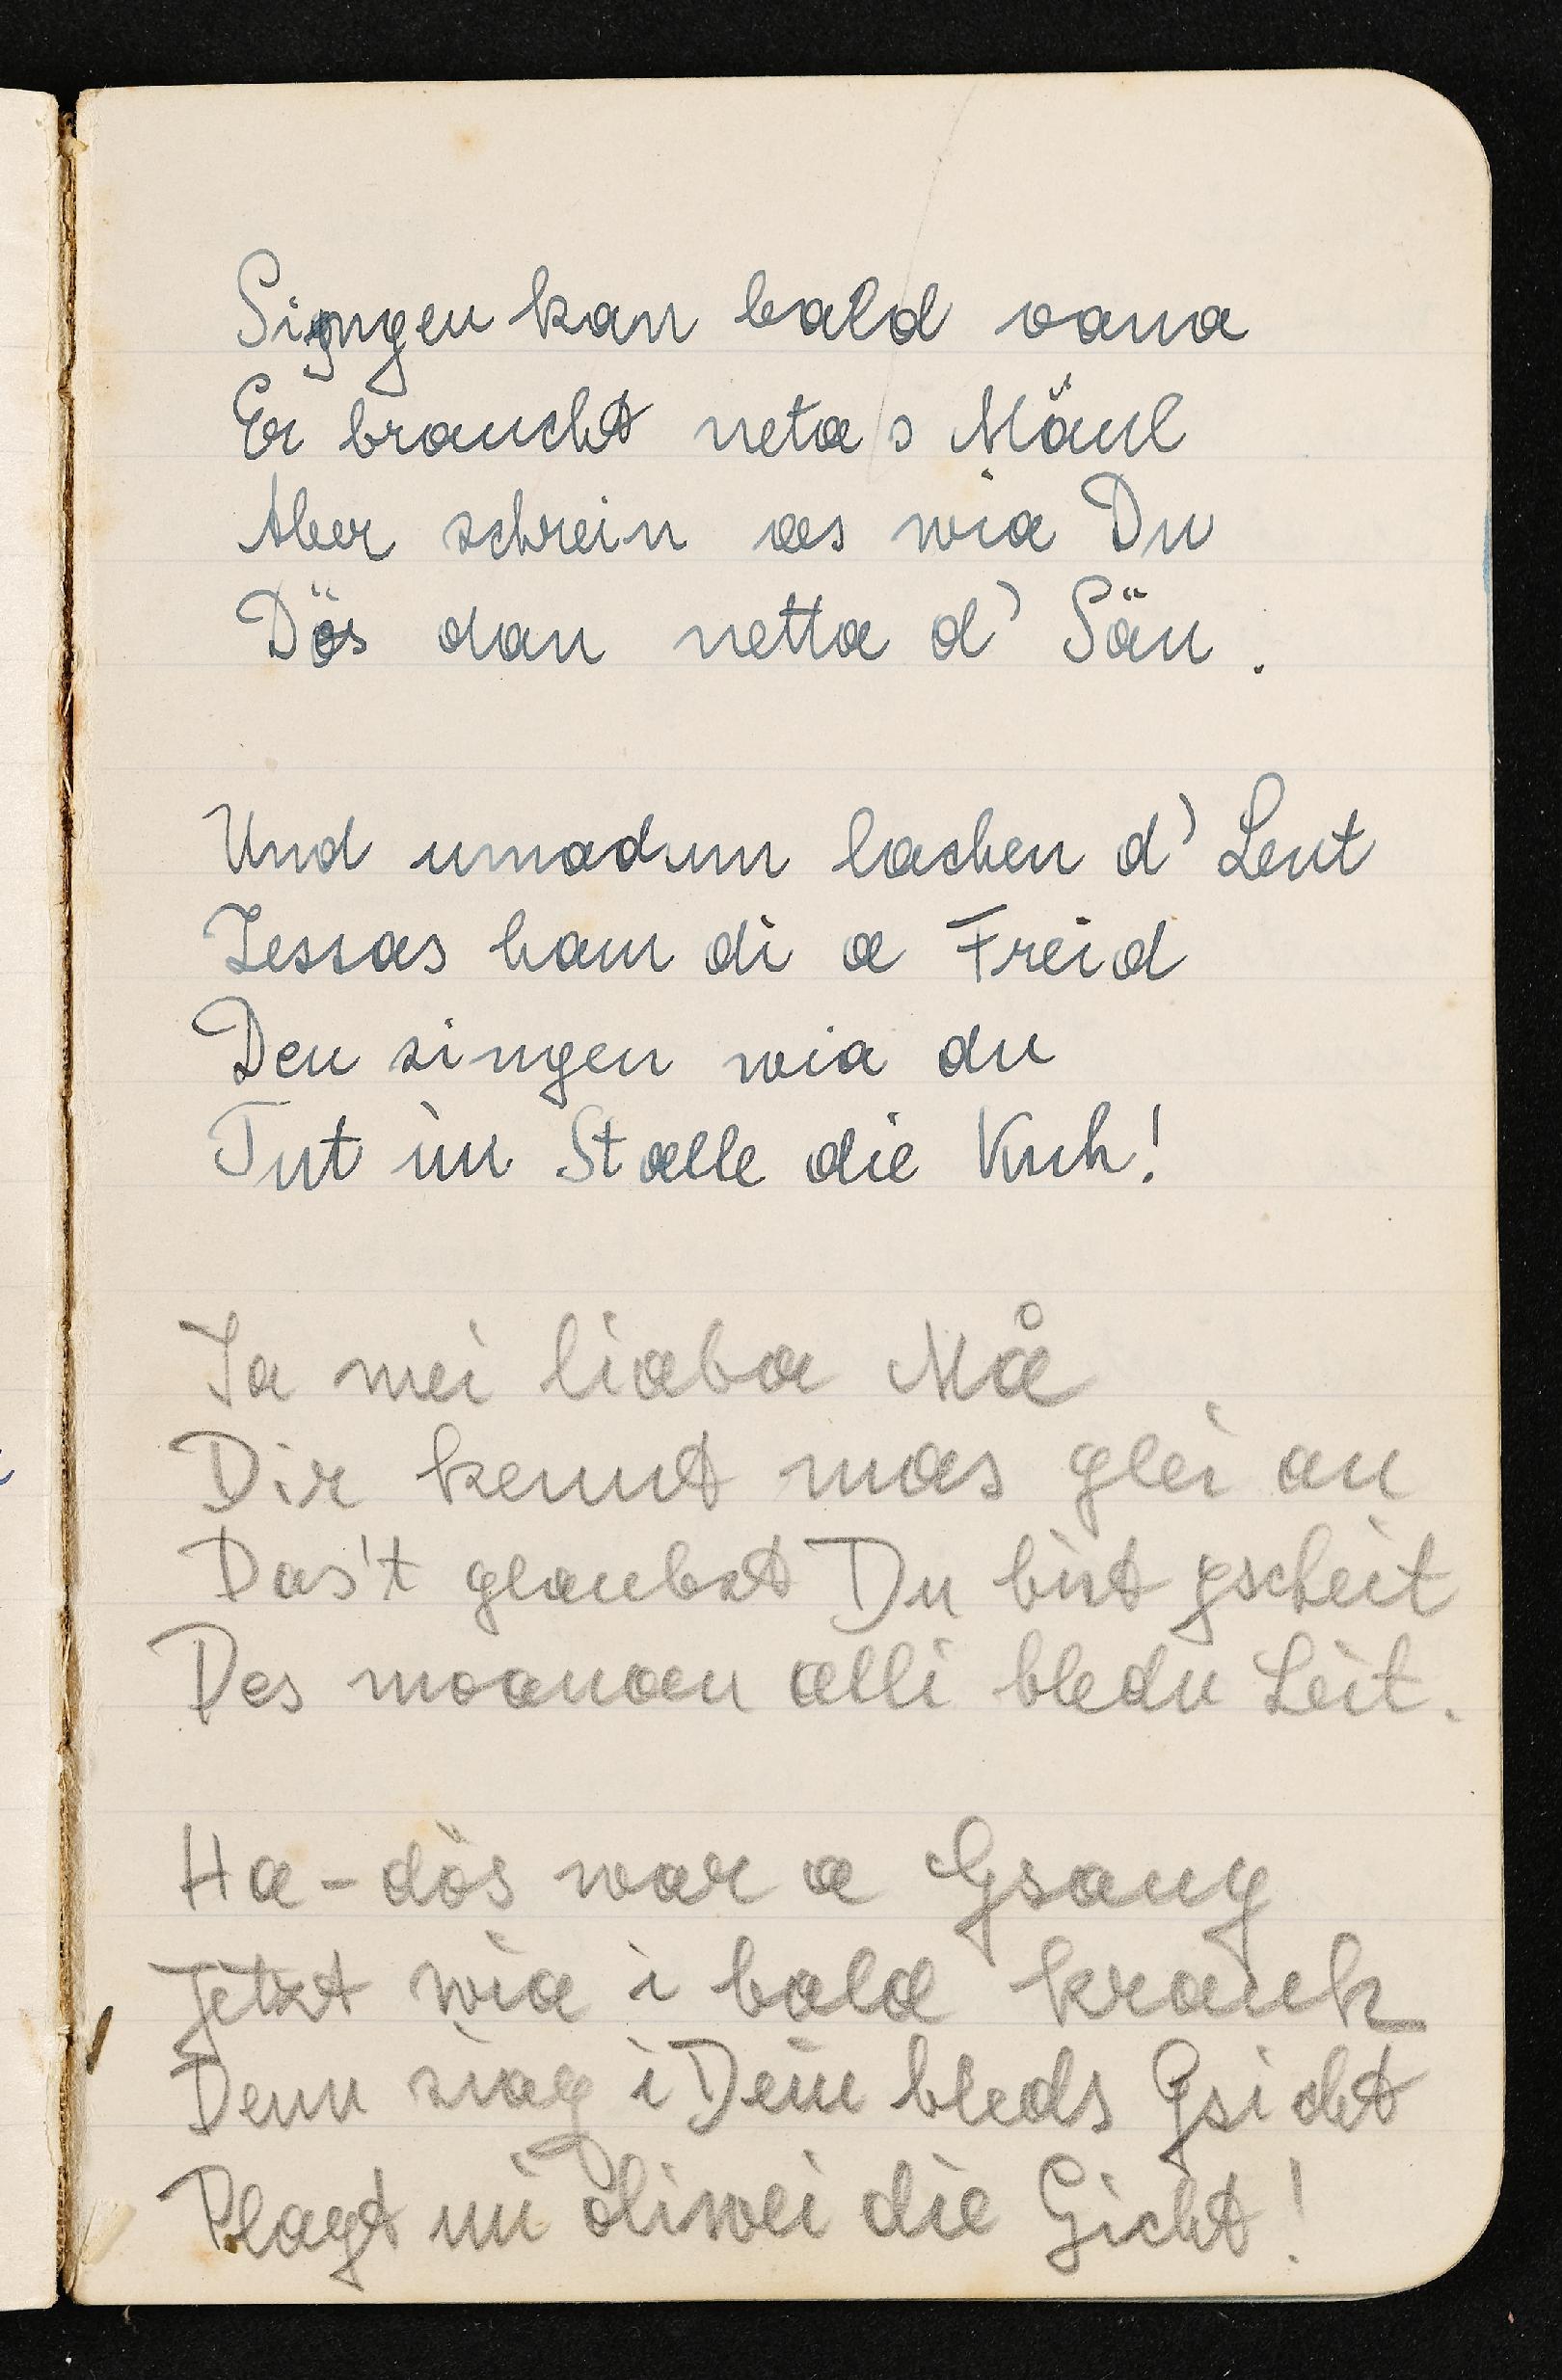 Singen kan bald oana
Er braucht neta s Mäul
Aber schrein as wia Du
Dös dan netta d' Säu.
Und umadum lachen d' Leut
Jessas ham di a Freid
Den singen wia du
Tut im Stalle die Kuh!
Ja mei liaba Må
Dir kennt mas glei an
Das't glaubst Du bist gscheit
Des moanan alli bledn Leit.
Ha-dös war a Gsang
Jetzt wia i bald krank
Denn siag i Dein bleds Gsicht
Plagt mi oliwei die Gicht!